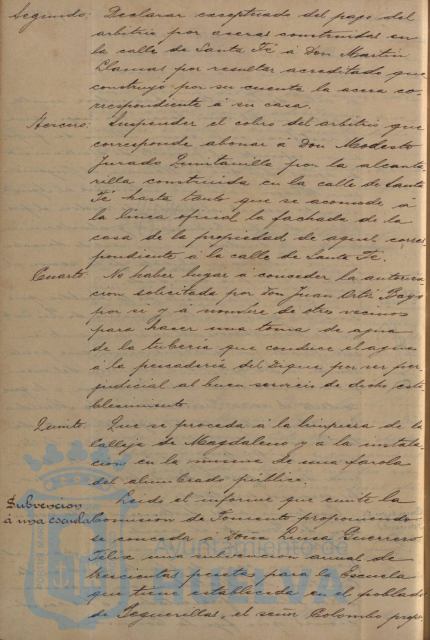 Segundo: Declarar exceptuado del pago del
arbitrio por aceras construidas en
la calle de Santa Fé á Don Martin
Llamas por resultar acreditado que
construyó por su cuenta la acera co-
rrespondiente á su casa.
Tercero: Suspender el cobro del arbitrio que
corresponde abonar á Don Modesto
Jurado Quintanilla por la alcanta-
rilla construida en la calle de Santa
Fé hasta tanto que se acomode á
la linea oficial la fachada de la
casa de la propiedad de aquel corres-
pondiente á la calle de Santa Fé.
Cuarto: No haber lugar á conceder la autoriza-
cion solicitada por Don Juan Ortiz Bayo
por si y á nombre de otros vecinos
para hacer una toma de agua
de la tuberia que conduce el agua
á la pescaderia del Dique por ser per-
judicial al buen servicio de dicho esta-
blecimiento.
Quinto: Que se proceda á la limpieza de la
calleja de Magdaleno y á la instala-
cion en la misma de una farola
del alumbrado público.
Subvencion Leido el informe que emite la
á una escuela Comision de Fomento proponiendo
se conceda á Doña Luisa Guerrero
Felix una subvencion anual de
trescientas pesetas para la Escuela
que tiene establecida en el poblado
de Peguerillas, el señor Colombo propo-
Ayuntamiento de
HUELVA